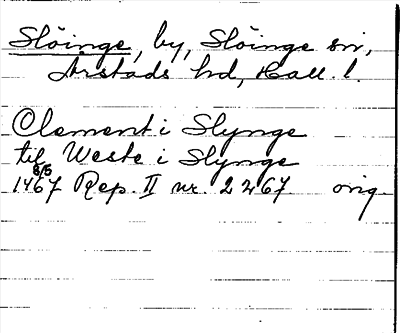 Slöinge, by, Slöinge sn,
Årstads hd, Hall. l.
Clement i Slynge
til Weste i Slynge
8/5
1467 Rep. II nr. 2267 orig.